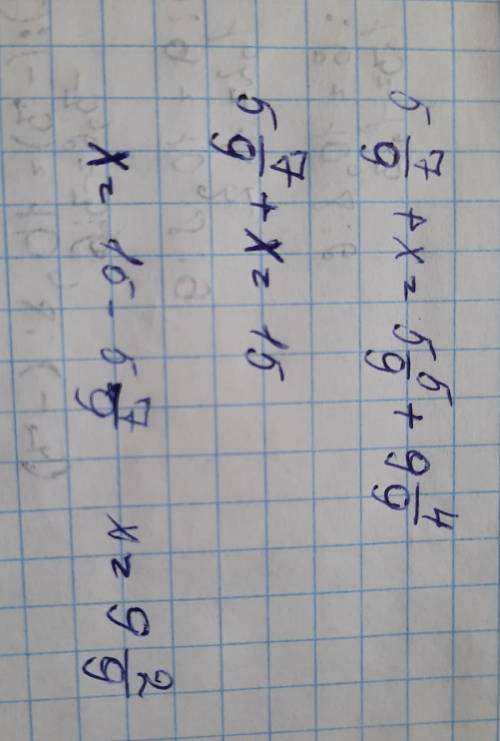 5 7/9 + x = 5 5/9 + 9 4/9
5 7/9 + x = 15
x = 15 - 5 7/9 x = 9 2/9